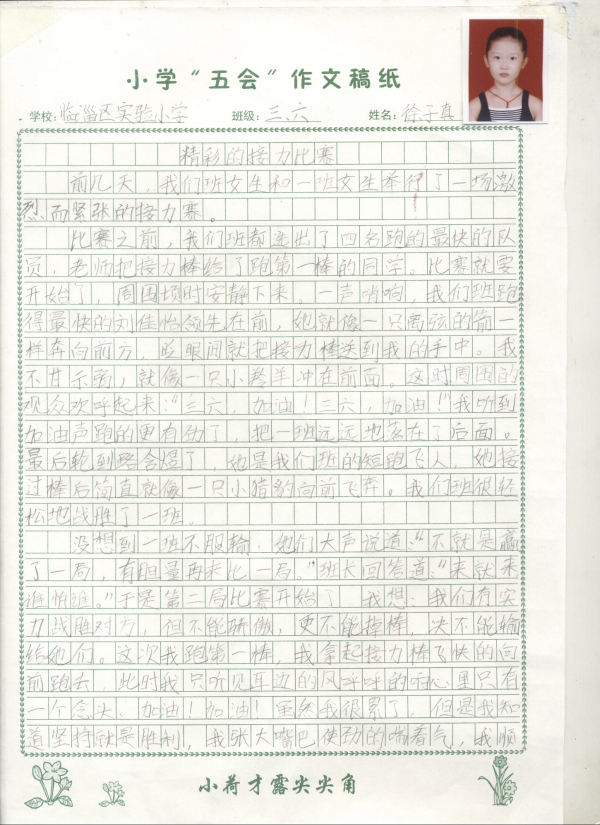 小学“五会”作文稿纸
学校：临淄区实验小学 班级：三、六 姓名：徐子真
精彩的接力比赛
前几天，我们班女生和一班女生举行了一场激
烈而紧张的接力赛。
比赛之前，我们班都选出了四名跑的最快的队
员，老师把接力棒给了跑第一棒的同学。比赛就要
开始了，周围顷时安静下来。一声哨响，我们班跑
得最快的刘佳怡领先在前，她就像一只离弦的箭一
样奔向前方，眨眼间就把接力棒送到我的手中。我
不甘示弱，就像一只小羚羊冲在前面。这时周围的
观众欢呼起来：“三六，加油！三六，加油！”我听到
加油声跑的更有劲了，把一班远远地落在了后面。
最后轮到路会煜了，她是我们班的短跑飞人，她接
过棒后简直就像一只小猎豹向前飞奔。我们班很轻
松地战胜了一班。
没想到一班不服输，她们大声说道：“不就是赢
了一局，有胆量再来比一局。”班长回答道：“来就来
谁怕谁。”于是第二局比赛开始了，我想：我们有实
力战胜对方，但不能骄傲，更不能掉棒，决不能输
给她们。这次我跑第一棒，我拿起接力棒飞快的向
前跑去，此时我只听见耳边的风呼呼的响心里只有
一个念头，加油！加油！虽然我很累了，但是我知
道坚持就是胜利，我张大嘴巴使劲的喘着气，我顺
小荷才露尖尖角